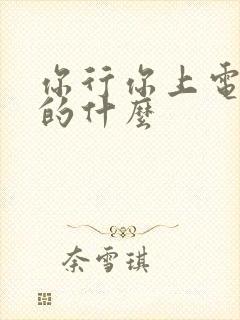 你行你上電
的什麼
奈雪琪